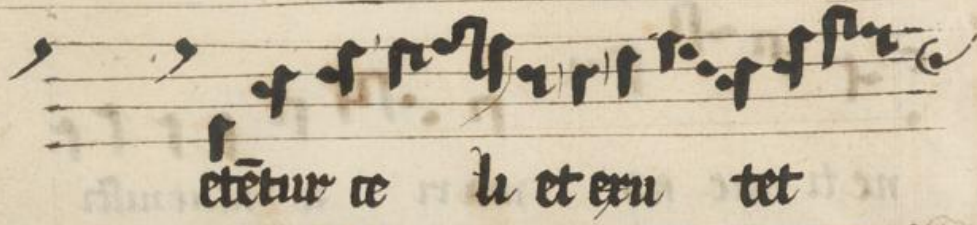 etētur ce li et exu tet